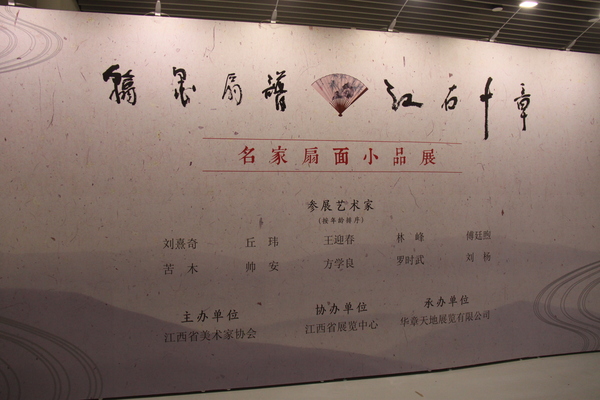 翰墨扇谱 红石十章
名家扇面小品展
参展艺术家
(按年龄排序)
刘熹奇 丘玮 王迎春 林峰 傅廷煦
苦木 帅安 方学良 罗时武 刘杨
主办单位 协办单位 承办单位
江西省美术家协会 江西省展览中心 华章天地展览有限公司